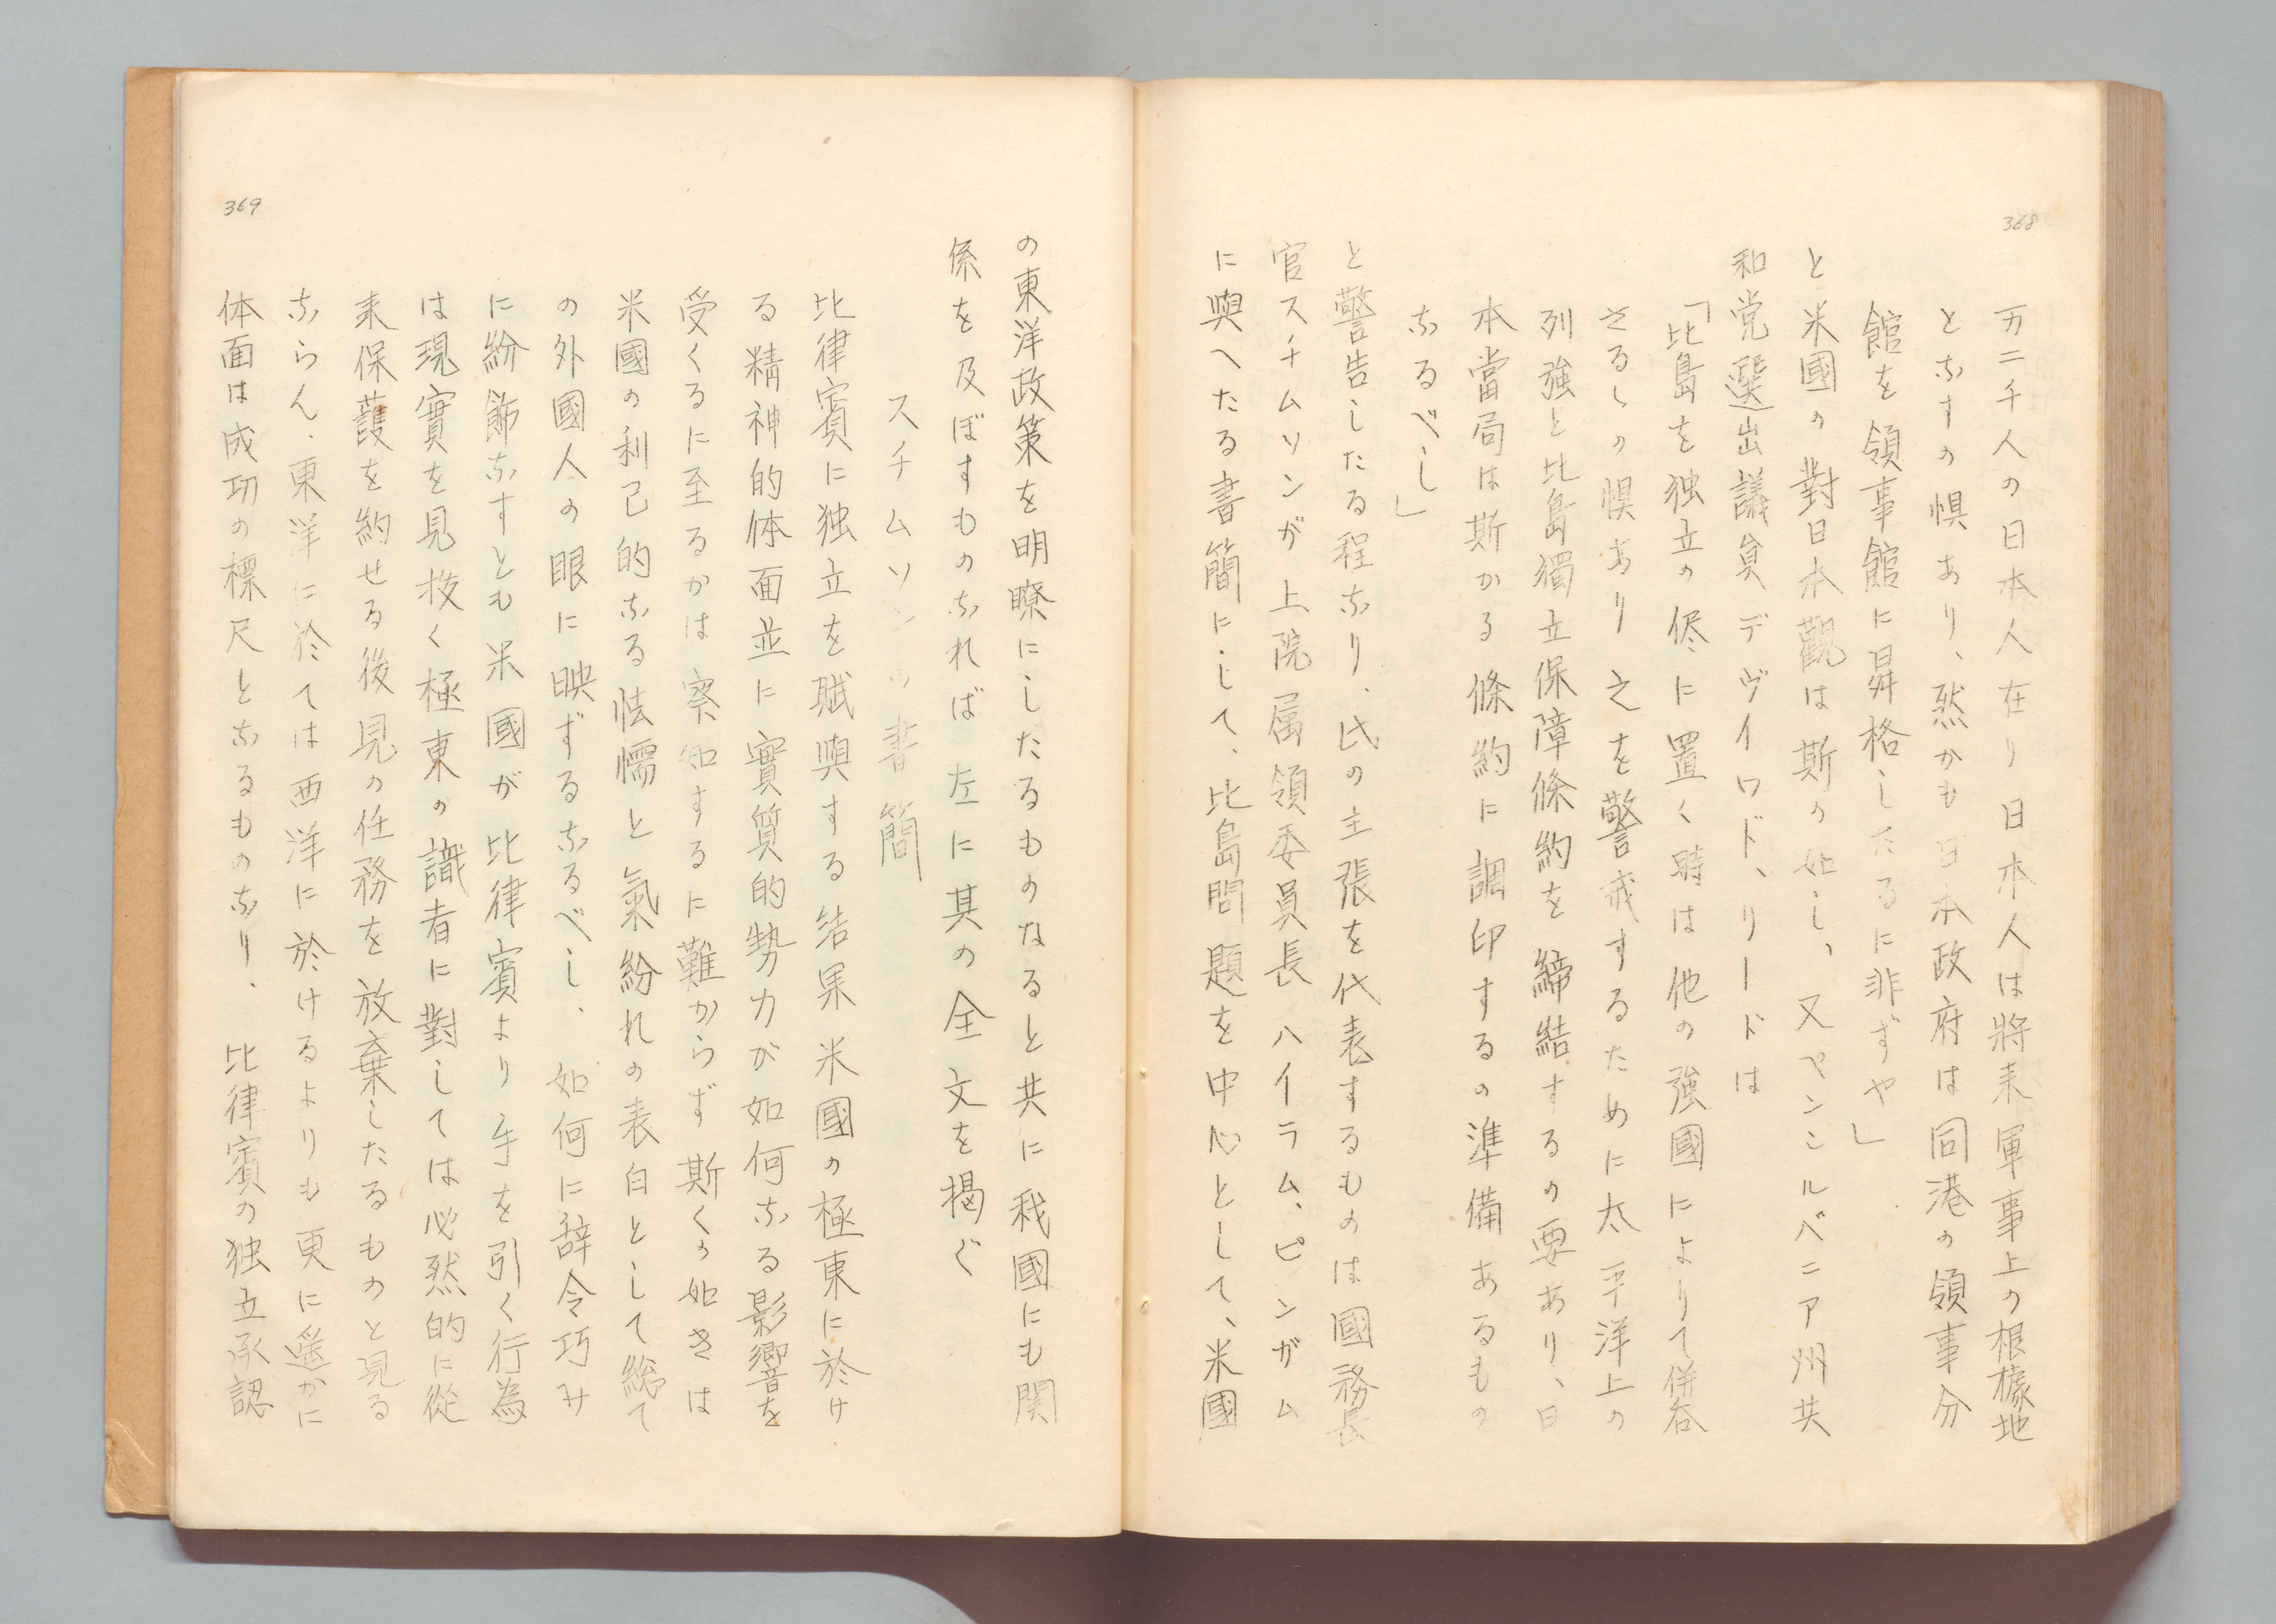 368
万二千人の日本人在り日本人は將来軍事上の根據地
となすの惧あり、然かも日本政府は同港の領事分
館を領事館に昇格したるに非ずや」
と米國の對日本觀は斯の如し、又ペンシルベニア州共
和党選出議員デヴイワド、リードは
「比島を独立の侭に置く時は他の強國によりて併呑
さるゝの惧あり之を警戒するために太平洋上の
列強と比島獨立保障條約を締結するの要あり、日
本當局は斯かる條約に調印するの準備あるもの
なるべし」
と警告したる程なり、氏の主張を代表するものは國務長
官スチムソンが上院属領委員長ハイラム、ピンガム
に與へたる書簡にして、比島問題を中心として、米國
の東洋政策を明瞭にしたるものなると共に我國にも関
係を及ぼすものなれば左に其の全文を揭ぐ
スチムソンの書簡
比律賓に独立を賦與する結果米國の極東に於け
る精神的体面並に實質的勢力が如何なる影響を
受くるに至るかは察知するに難からず斯くの如きは
米國の利己的なる怯懦と氣紛れの表白として総て
の外國人の眼に映ずるなるべし、如何に辞令巧み
に紛飾なすとも米國が比律賓より手を引く行為
は現實を見抜く極東の識者に對しては必然的に從
来保護を約せる後見の任務を放棄したるものと見る
ならん、東洋に於ては西洋に於けるよりも更に遥かに
体面は成功の標尺となるものなり、比律賓の独立承認
369